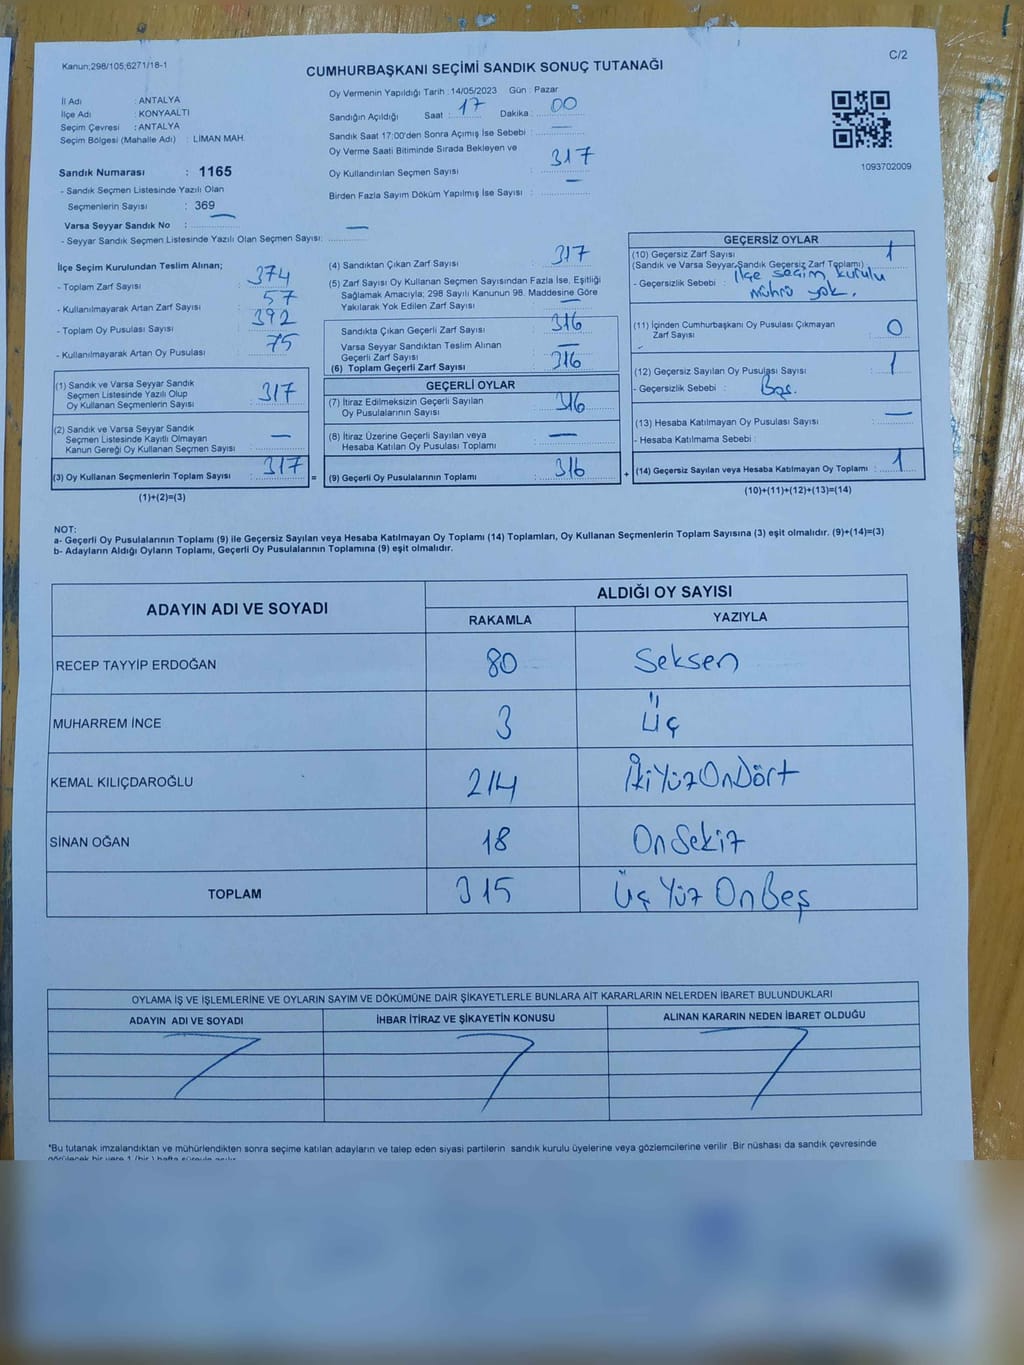 Kanun;298/105,6271/18-1
C/2
CUMHURBAŞKANI SEÇİMİ SANDIK SONUÇ TUTANAĞI
İl Adı : ANTALYA
İlçe Adı : KONYAALTI
Seçim Çevresi : ANTALYA
Seçim Bölgesi (Mahalle Adı) : LİMAN MAH.
Oy Vermenin Yapıldığı Tarih : 14/05/2023 Gün : Pazar
Sandığın Açıldığı Saat : 17 Dakika : 00
Sandık Saat 17:00'den Sonra Açımış İse Sebebi : —
Oy Verme Saati Bitiminde Sırada Bekleyen ve
Oy Kullandırılan Seçmen Sayısı : 317
Birden Fazla Sayım Döküm Yapılmış İse Sayısı : —
1093702009
Sandık Numarası : 1165
- Sandık Seçmen Listesinde Yazılı Olan
Seçmenlerin Sayısı : 369
Varsa Seyyar Sandık No : —
- Seyyar Sandık Seçmen Listesinde Yazılı Olan Seçmen Sayısı: —
İlçe Seçim Kurulundan Teslim Alınan;
- Toplam Zarf Sayısı : 374
- Kullanılmayarak Artan Zarf Sayısı : 57
- Toplam Oy Pusulası Sayısı : 392
- Kullanılmayarak Artan Oy Pusulası : 75
(1) Sandık ve Varsa Seyyar Sandık
Seçmen Listesinde Yazılı Olup
Oy Kullanan Seçmenlerin Sayısı : 317
(2) Sandık ve Varsa Seyyar Sandık
Seçmen Listesinde Kayıtlı Olmayan
Kanun Gereği Oy Kullanan Seçmen Sayısı : —
(3) Oy Kullanan Seçmenlerin Toplam Sayısı : 317
(1)+(2)=(3)
(4) Sandıktan Çıkan Zarf Sayısı : 317
(5) Zarf Sayısı Oy Kullanan Seçmen Sayısından Fazla İse, Eşitliği
Sağlamak Amacıyla; 298 Sayılı Kanunun 98. Maddesine Göre
Yakılarak Yok Edilen Zarf Sayısı : —
Sandıkta Çıkan Geçerli Zarf Sayısı : 316
Varsa Seyyar Sandıktan Teslim Alınan
Geçerli Zarf Sayısı : —
(6) Toplam Geçerli Zarf Sayısı : 316
GEÇERLİ OYLAR
(7) İtiraz Edilmeksizin Geçerli Sayılan
Oy Pusulalarının Sayısı : 316
(8) İtiraz Üzerine Geçerli Sayılan veya
Hesaba Katılan Oy Pusulası Toplamı : —
= (9) Geçerli Oy Pusulalarının Toplamı : 316
GEÇERSİZ OYLAR
(10) Geçersiz Zarf Sayısı : 1
(Sandık ve Varsa Seyyar Sandık Geçersiz Zarf Toplamı)
- Geçersizlik Sebebi : ilçe seçim kurulu
mührü yok.
(11) İçinden Cumhurbaşkanı Oy Pusulası Çıkmayan
Zarf Sayısı : 0
(12) Geçersiz Sayılan Oy Pusulası Sayısı : 1
- Geçersizlik Sebebi : Boş.
(13) Hesaba Katılmayan Oy Pusulası Sayısı : —
- Hesaba Katılmama Sebebi :
+ (14) Geçersiz Sayılan veya Hesaba Katılmayan Oy Toplamı : 1
(10)+(11)+(12)+(13)=(14)
NOT:
a- Geçerli Oy Pusulalarının Toplamı (9) ile Geçersiz Sayılan veya Hesaba Katılmayan Oy Toplamı (14) Toplamları, Oy Kullanan Seçmenlerin Toplam Sayısına (3) eşit olmalıdır. (9)+(14)=(3)
b- Adayların Aldığı Oyların Toplamı, Geçerli Oy Pusulalarının Toplamına (9) eşit olmalıdır.
ADAYIN ADI VE SOYADI
ALDIĞI OY SAYISI
RAKAMLA YAZIYLA
RECEP TAYYİP ERDOĞAN 80 Seksen
MUHARREM İNCE 3 Üç
KEMAL KILIÇDAROĞLU 214 İkiYüzOnDört
SİNAN OĞAN 18 OnSekiz
TOPLAM 315 Üç Yüz OnBeş
OYLAMA İŞ VE İŞLEMLERİNE VE OYLARIN SAYIM VE DÖKÜMÜNE DAİR ŞİKAYETLERLE BUNLARA AİT KARARLARIN NELERDEN İBARET BULUNDUKLARI
ADAYIN ADI VE SOYADI İHBAR İTİRAZ VE ŞİKAYETİN KONUSU ALINAN KARARIN NEDEN İBARET OLDUĞU
*Bu tutanak imzalandıktan ve mühürlendikten sonra seçime katılan adayların ve talep eden siyasi partilerin sandık kurulu üyelerine veya gözlemcilerine verilir. Bir nüshası da sandık çevresinde